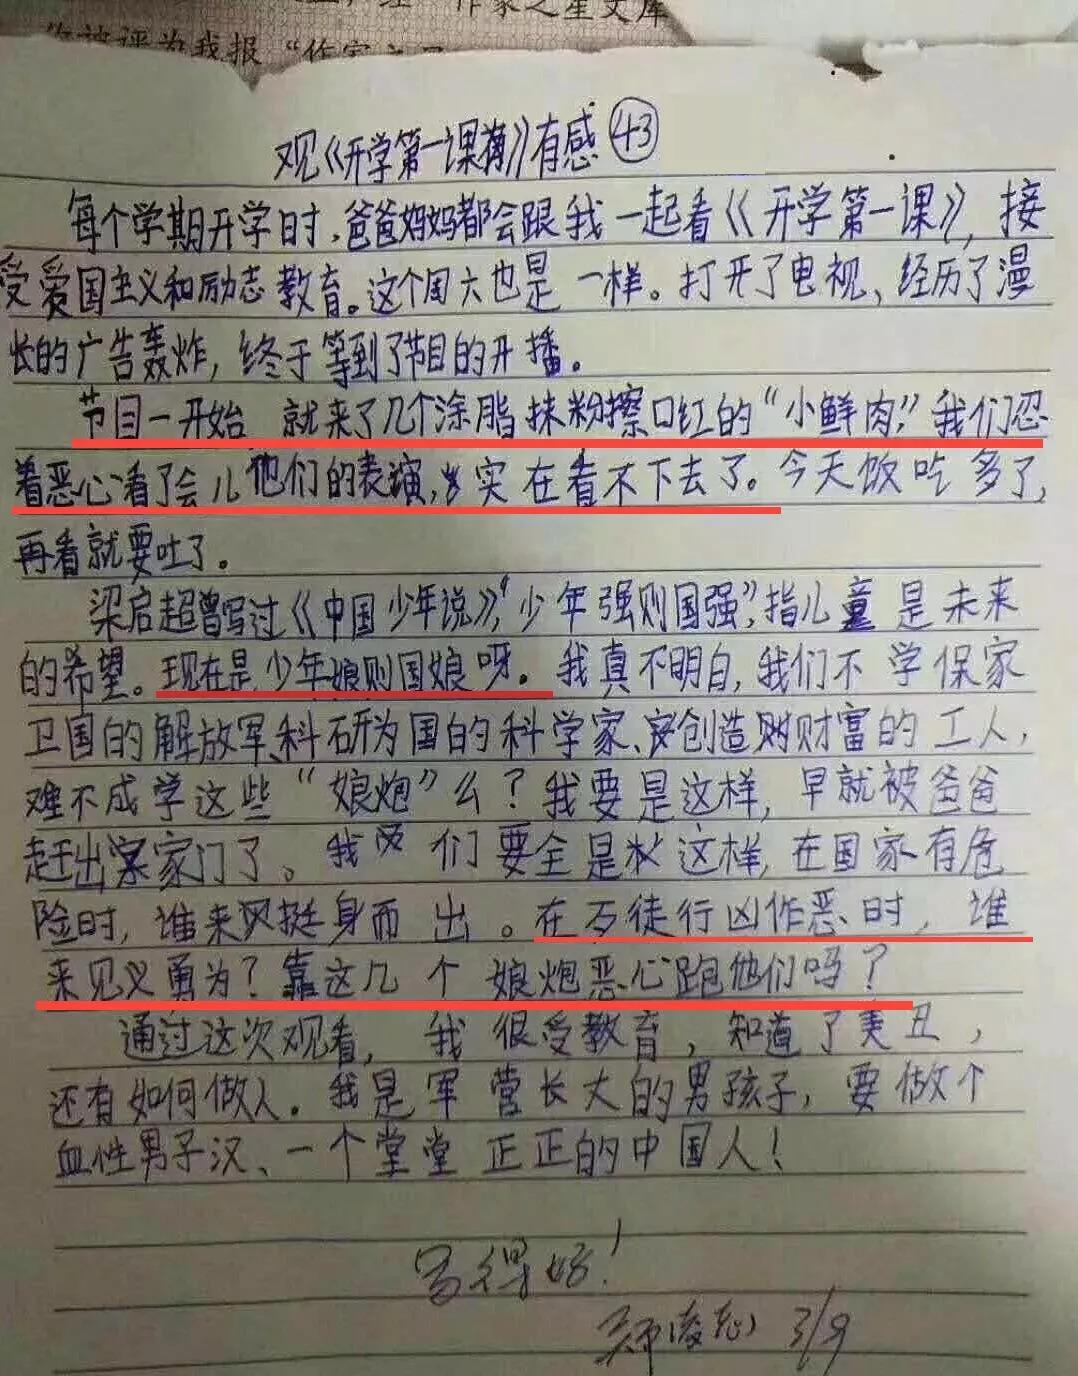 作家之星文库
你被评为我报“作家之星
观《开学第一课》有感 43
每个学期开学日时,爸爸妈妈都会跟我一起看《开学第一课》,接
受爱国主义和励志教育。这个周六也是一样。打开了电视、经历了漫
长的广告轰炸,终于等到了节目的开播。
节目一开始 就来了几个涂脂抹粉擦口红的“小鲜肉”,我们忍
着恶心看了会儿他们的表演,实在看不下去了。今天饭吃多了,
再看就要吐了。
梁启超曾写过《中国少年说》,“少年强则国强”,指儿童是未来
的希望。现在是少年娘则国娘呀。我真不明白,我们不学保家
卫国的解放军、科研为国的科学家、创造财富的工人,
难不成学这些“娘炮”么?我要是这样,早就被爸爸
赶出家门了。我们要全是这样,在国家有危
险时,谁来挺身而出。在歹徒行凶作恶时,谁
来见义勇为?靠这几个娘炮恶心跑他们吗?
通过这次观看,我很受教育,知道了美丑,
还有如何做人。我是军营长大的男孩子,要做个
血性男子汉、一个堂堂正正的中国人!
写得好!
3/9